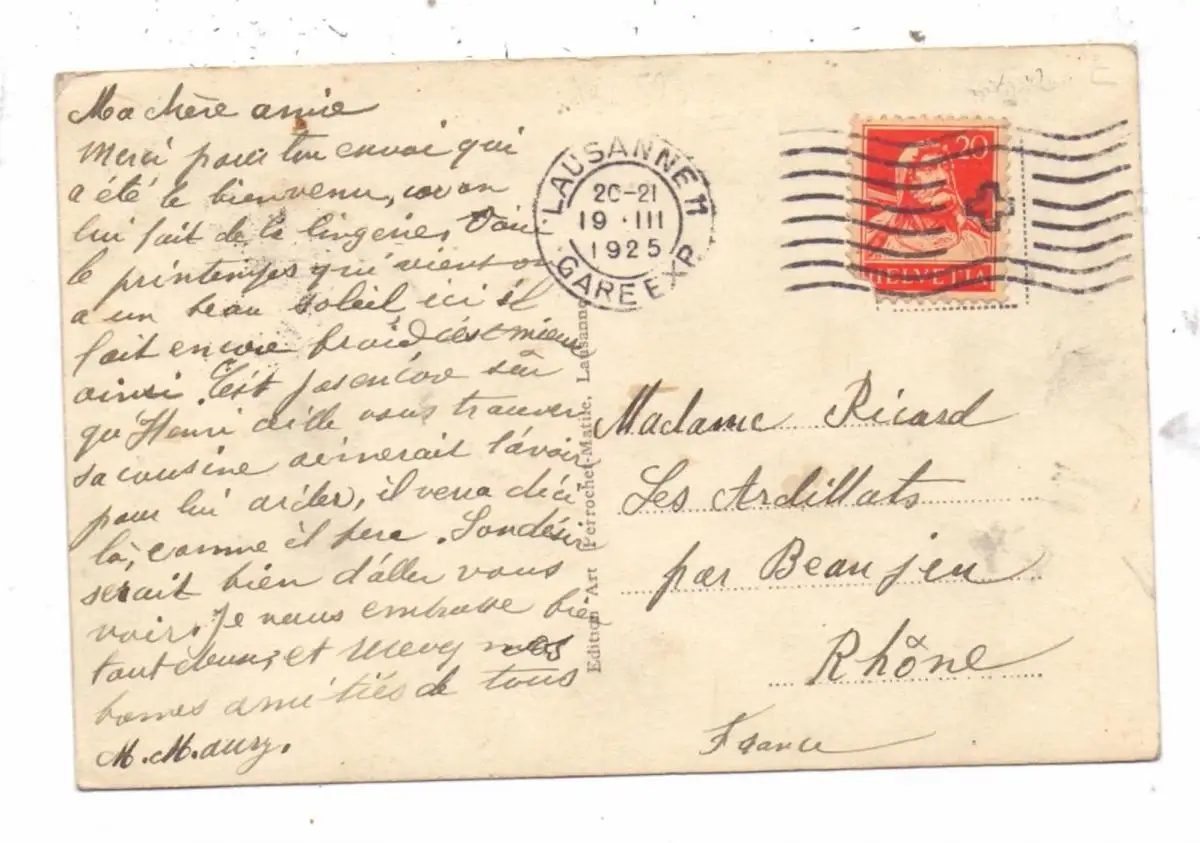 Ma chère amie
Merci pour ton envoi qui
a été le bienvenu, car on
lui fait de la lingerie. Voici
le printemps qui vient on
a un beau soleil ici il
fait encore froid c'est mieux
ainsi. C'est pas encore sûr
qu'Henri aille vous trouver
sa cousine aimerait l'avoir
pour lui aider, il verra d'ici
là, comme il fera. Son désir
serait bien d'aller vous
voir. Je vous embrasse bien
tout deux, et recevez nos
bonnes amitiés de tous
M.
LAUSANNE 11
20-21
19 · III
1925
GARE EXP.
20
HELVETIA
Edition Art Perrochet-Matile, Lausanne
Madame Ricard
Les Ardillats
par Beaujeu
Rhône
France